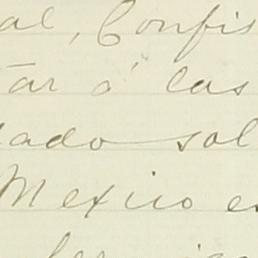 al, Confis
tar á las
ado sol
Mexico e